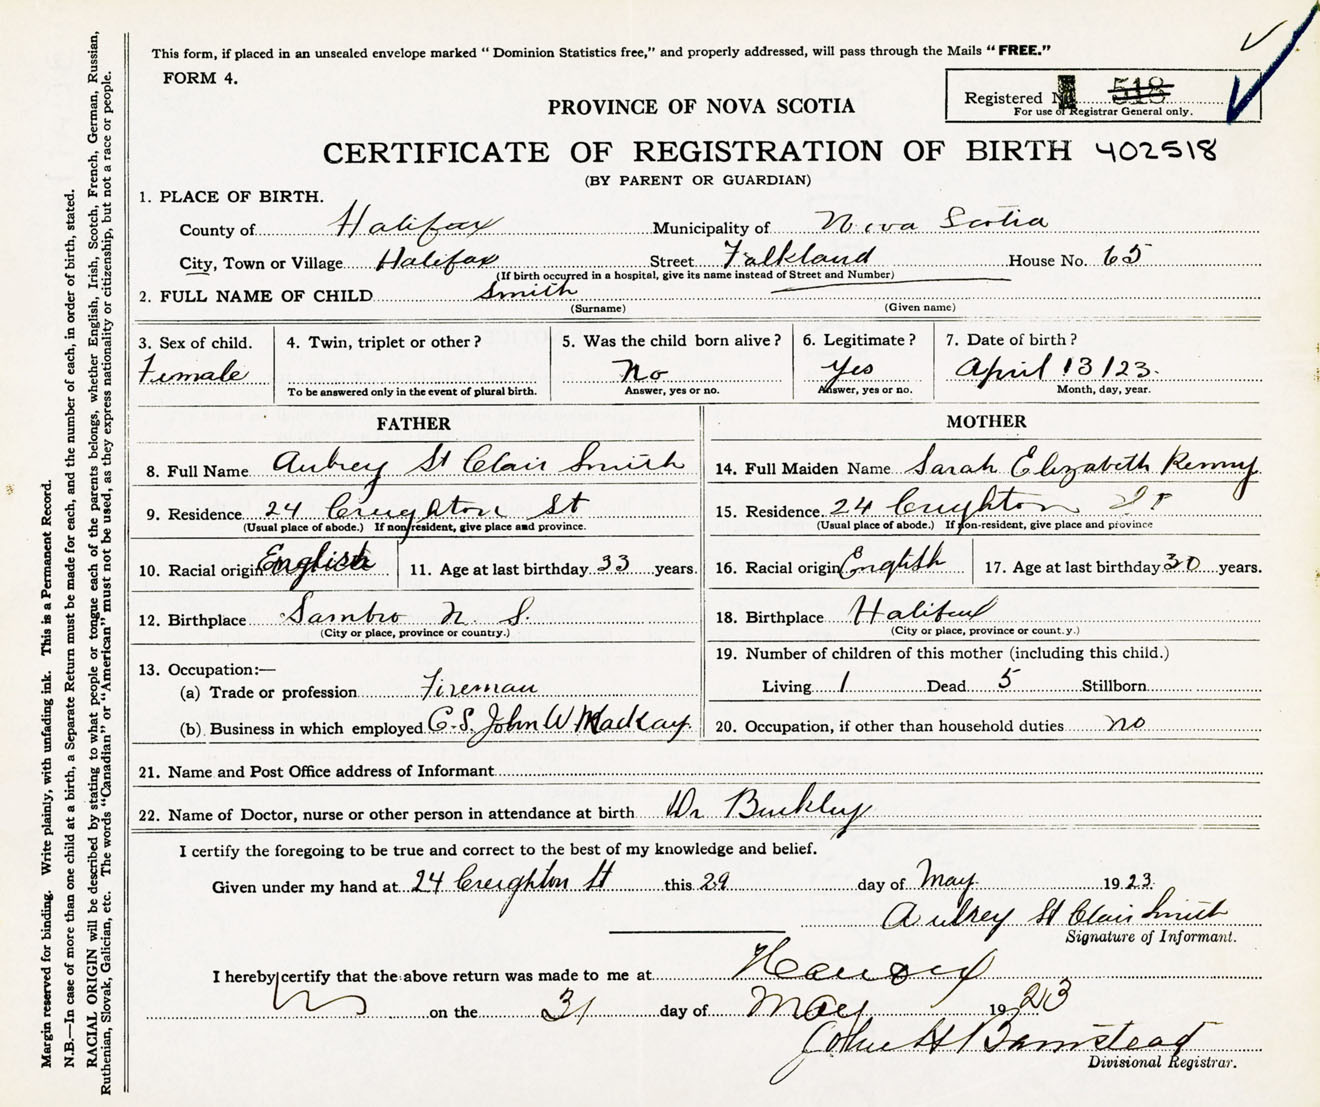 This form, if placed in an unsealed envelope marked " Dominion Statistics free," and properly addressed, will pass through the Mails " FREE."
FORM 4.
Registered No. 518
For use of Registrar General only.
PROVINCE OF NOVA SCOTIA
CERTIFICATE OF REGISTRATION OF BIRTH 402518
(BY PARENT OR GUARDIAN)
1. PLACE OF BIRTH.
County of Halifax Municipality of Nova Scotia
City, Town or Village Halifax Street Falkland House No. 65
(If birth occurred in a hospital, give its name instead of Street and Number)
2. FULL NAME OF CHILD Smith
(Surname) (Given name)
3. Sex of child. 4. Twin, triplet or other? 5. Was the child born alive? 6. Legitimate? 7. Date of birth?
Female No Yes April 13/23.
To be answered only in the event of plural birth. Answer, yes or no. Answer, yes or no. Month, day, year.
FATHER MOTHER
8. Full Name Aubrey St Clair Smith 14. Full Maiden Name Sarah Elizabeth Kenny
9. Residence 24 Creighton St 15. Residence 24 Creighton St
(Usual place of abode.) If non/resident, give place and province. (Usual place of abode.) If non-resident, give place and province
10. Racial origin English 11. Age at last birthday 33 years. 16. Racial origin English 17. Age at last birthday 30 years.
12. Birthplace Sambro N. S. 18. Birthplace Halifax
(City or place, province or country.) (City or place, province or count.y.)
13. Occupation:— 19. Number of children of this mother (including this child.)
(a) Trade or profession Fireman Living 1 Dead 5 Stillborn
(b) Business in which employed C.S. John W Mackay. 20. Occupation, if other than household duties no
21. Name and Post Office address of Informant
22. Name of Doctor, nurse or other person in attendance at birth Dr Buckley
I certify the foregoing to be true and correct to the best of my knowledge and belief.
Given under my hand at 24 Creighton St this 29 day of May 1923.
Aubrey St Clair Smith
Signature of Informant.
I hereby certify that the above return was made to me at
on the 31 day of May 1923
John H Barnstead
Divisional Registrar.
Margin reserved for binding. Write plainly, with unfading ink. This is a Permanent Record.
N.B.—In case of more than one child at a birth, a Separate Return must be made for each, and the number of each, in order of birth, stated.
RACIAL ORIGIN will be described by stating to what people or tongue each of the parents belongs, whether English, Irish, Scotch, French, German, Russian,
Ruthenian, Slovak, Galician, etc. The words "Canadian" or "American" must not be used, as they express nationality or citizenship, but not a race or people.